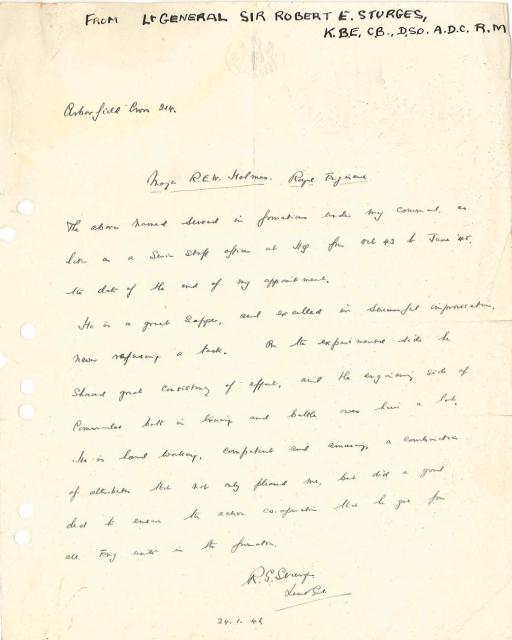 FROM Lt GENERAL SIR ROBERT E. STURGES,
K.BE, CB., D,SO. A.D.C. R.M
Arborfield Cross 214.
Major R.E.W. Holmes. Royal Engineers
The above named served in formations under my command, and
later as a Senior Staff officer at HQ from Oct 43 to June '45,
the date of the end of my appointment.
He is a great Sapper, and excelled in successful improvisation,
never refusing a task. On the experimental side he
showed great consistency of effort, and the engineering side of
Commandos both in training and battle owes him a lot.
He is hard working, competent and amusing, a combination
of attributes that not only pleased me, but did a good
deal to ensure the active co-operation that he got from
all Eng units in the formation.
R.G. Sturges
Lieut Genl
24.1.46